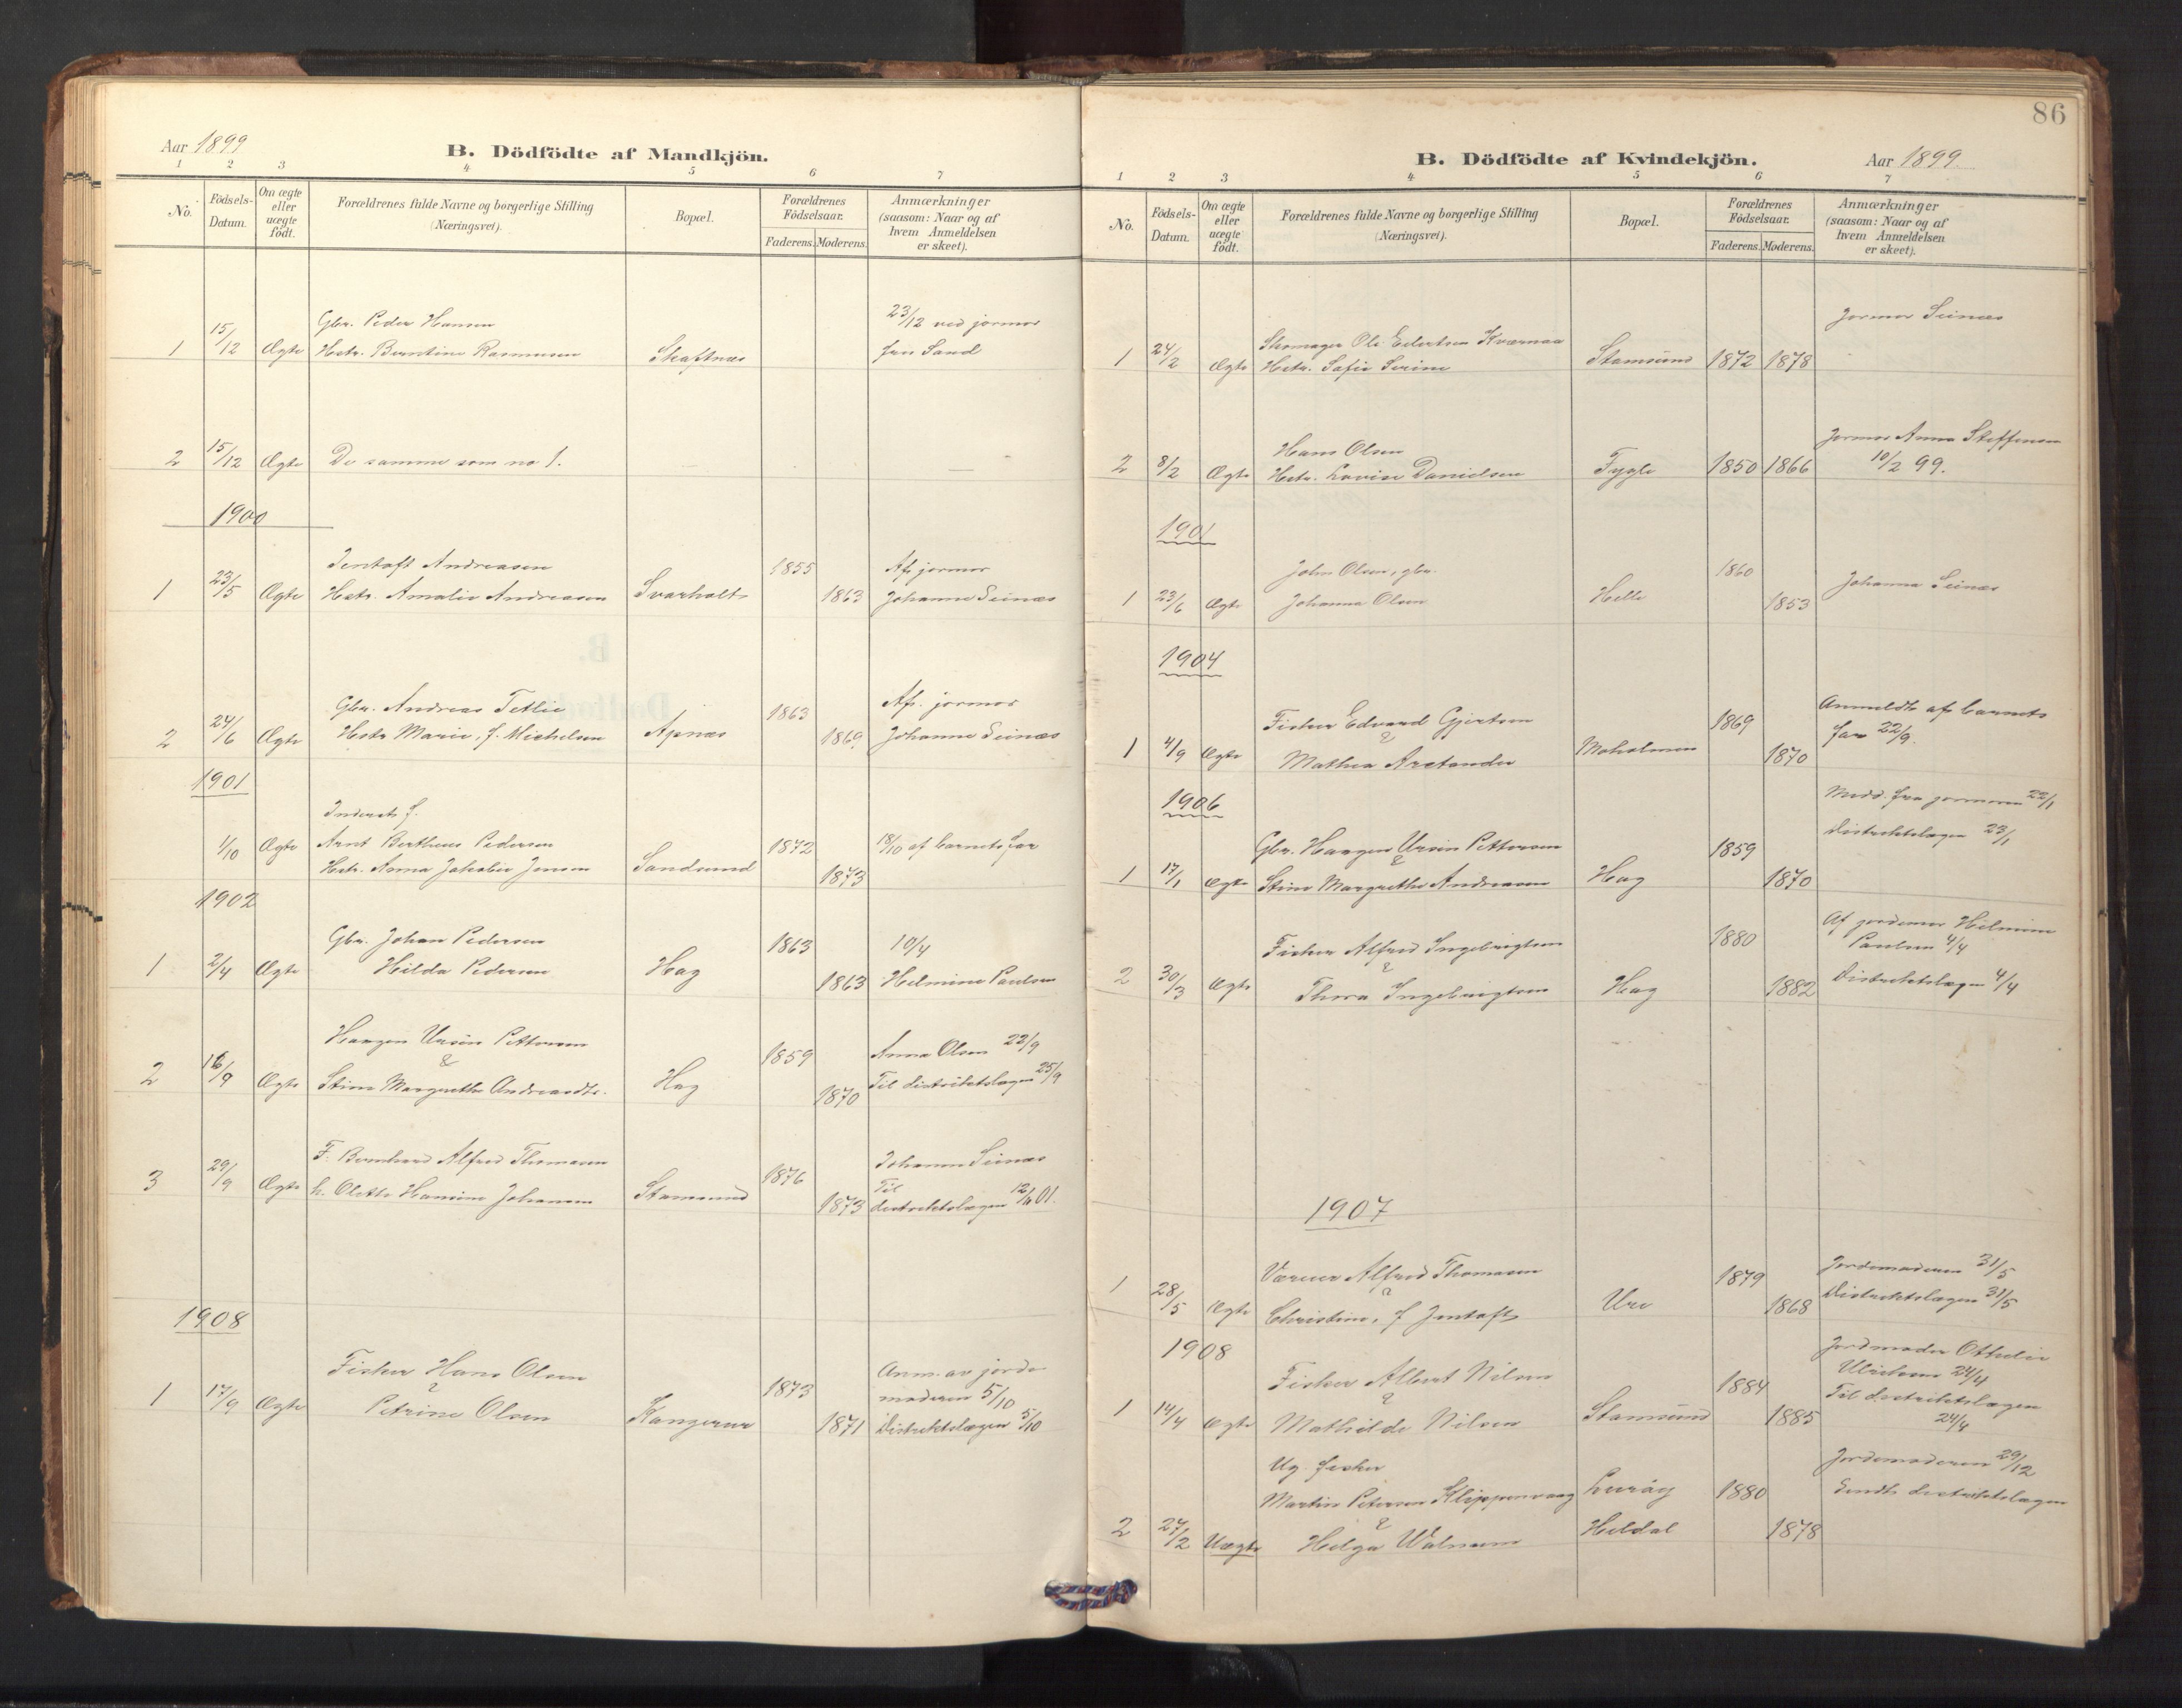 Aar 1899
B. Dödfödte af Mandkjön.
1 2 3 4 5 6 7
No.
Födsels-
Datum.
Om ægte
eller
uægte
födt.
Forældrenes fulde Navne og borgerlige Stilling
(Næringsvei).
Bopæl.
Forældrenes
Födselsaar.
Faderens. Moderens.
Anmærkninger
(saasom: Naar og af
hvem Anmeldelsen
er skeet).
Gbr. Peder Hansen 23/12 ved jormor
1 15/12 Ægte Hstr. Berntine Rasmussen Skaftnæs fru Sand
2 15/12 Ægte De samme som no 1. — —
1900
Jentoft Andreasen 1855 Af jormor
1 23/5 Ægte Hstr. Amalie Andreasen Svarholt 1863 Johanne Seines
Gbr. Andreas Tetlie 1863 Af. jormor
2 24/6 Ægte Hstr Marie, f. Michelsen Apnæs 1869. Johanne Seines
1901
Inderst f.
1/10 Ægte Arnt Bertheus Pedersen 1872 18/10 af barnets far
Hstr. Anna Jakobie Jensen Sandsund 1873
1902
Gbr. Johan Pedersen 1863 10/4
1 2/4 Ægte Hilda Pedersen Hag 1863 Helmine Paulsen
Haagen Ursin Pettersen 1859 Anna Olsen 22/9
&
2 16/9 Ægte Stine Margrethe Andreasdtr. Hag 1870 Til distriktslægen 25/9
F. Bernhard Alfred Thomassen 1876 Johanne Seines
3 29/9 Ægte h. Olette Hansine Johansen Stamsund 1873 Til
distriktslægen 01.
1908
Fisker Hans Olsen 1873 Anm. av jorde-
&
1 17/9 Ægte Petrine Olsen Kangerur 1871 moderen 5/10
Distriktslægen 5/10
86
B. Dödfödte af Kvindekjön.
Aar 1899.
1 2 3 4 5 6 7
No.
Födsels-
Datum.
Om ægte
eller
uægte
födt.
Forældrenes fulde Navne og borgerlige Stilling
(Næringsvei).
Bopæl.
Forældrenes
Födselsaar.
Faderens. Moderens.
Anmærkninger
(saasom: Naar og af
hvem Anmeldelsen
er skeet).
Skomager Ole Edvartsen Kværnaa Jormor Seines
1 24/2 Ægte Hstr. Sofie Serine Stamsund 1872 1878
Hans Olsen Jormor Anna Steffensen
2 8/2 Ægte Hstr. Lovise Danielsen Fygle 1850 1866 10/2 99.
1901
John Olsen, gbr. 1860 Johanna Seines
1 23/6 Ægte Johanna Olsen Helle 1853
1904
Fisker Edvard Gjertsen 1869 Anmeldt af barnets
&
1 4/9 Ægte Mathea Arctander Moholmen 1870 far 22/9.
1906
Medd. fra jormoren 22/1
Gbr. Haagen Ursin Pettersen 1859 Distriktslægen 23/1
&
1 17/1 Ægte Stine Margrethe Andreasen Hag 1870
Fisker Alfred Ingebrigtsen 1880 Af jordemor Helmine
&
2 30/3 Ægte Thora Ingebrigtsen Hag 1882 Paulsen 4/4
Distriktslægen 4/4
1907
Værner Alfred Thomassen 1879 Jordemoderen 31/5
&
1 28/5 Ægte Christine, f Jentoft Ure 1868 Distriktslægen 31/5
1908
Fisker Albert Nilsen 1884 Jordmoder Othelie
&
1 14/4 Ægte Mathilde Nilsen Stamsund 1885 Ulriksen 24/4
Til distriktslægen
24/4
Ug. fisker Jordemoderen 29/12
Martin Petersen Klippenvaag 1880 Sendt distriktslægen
&
2 27/2 Uægte Helga Walnum Heldal 1878